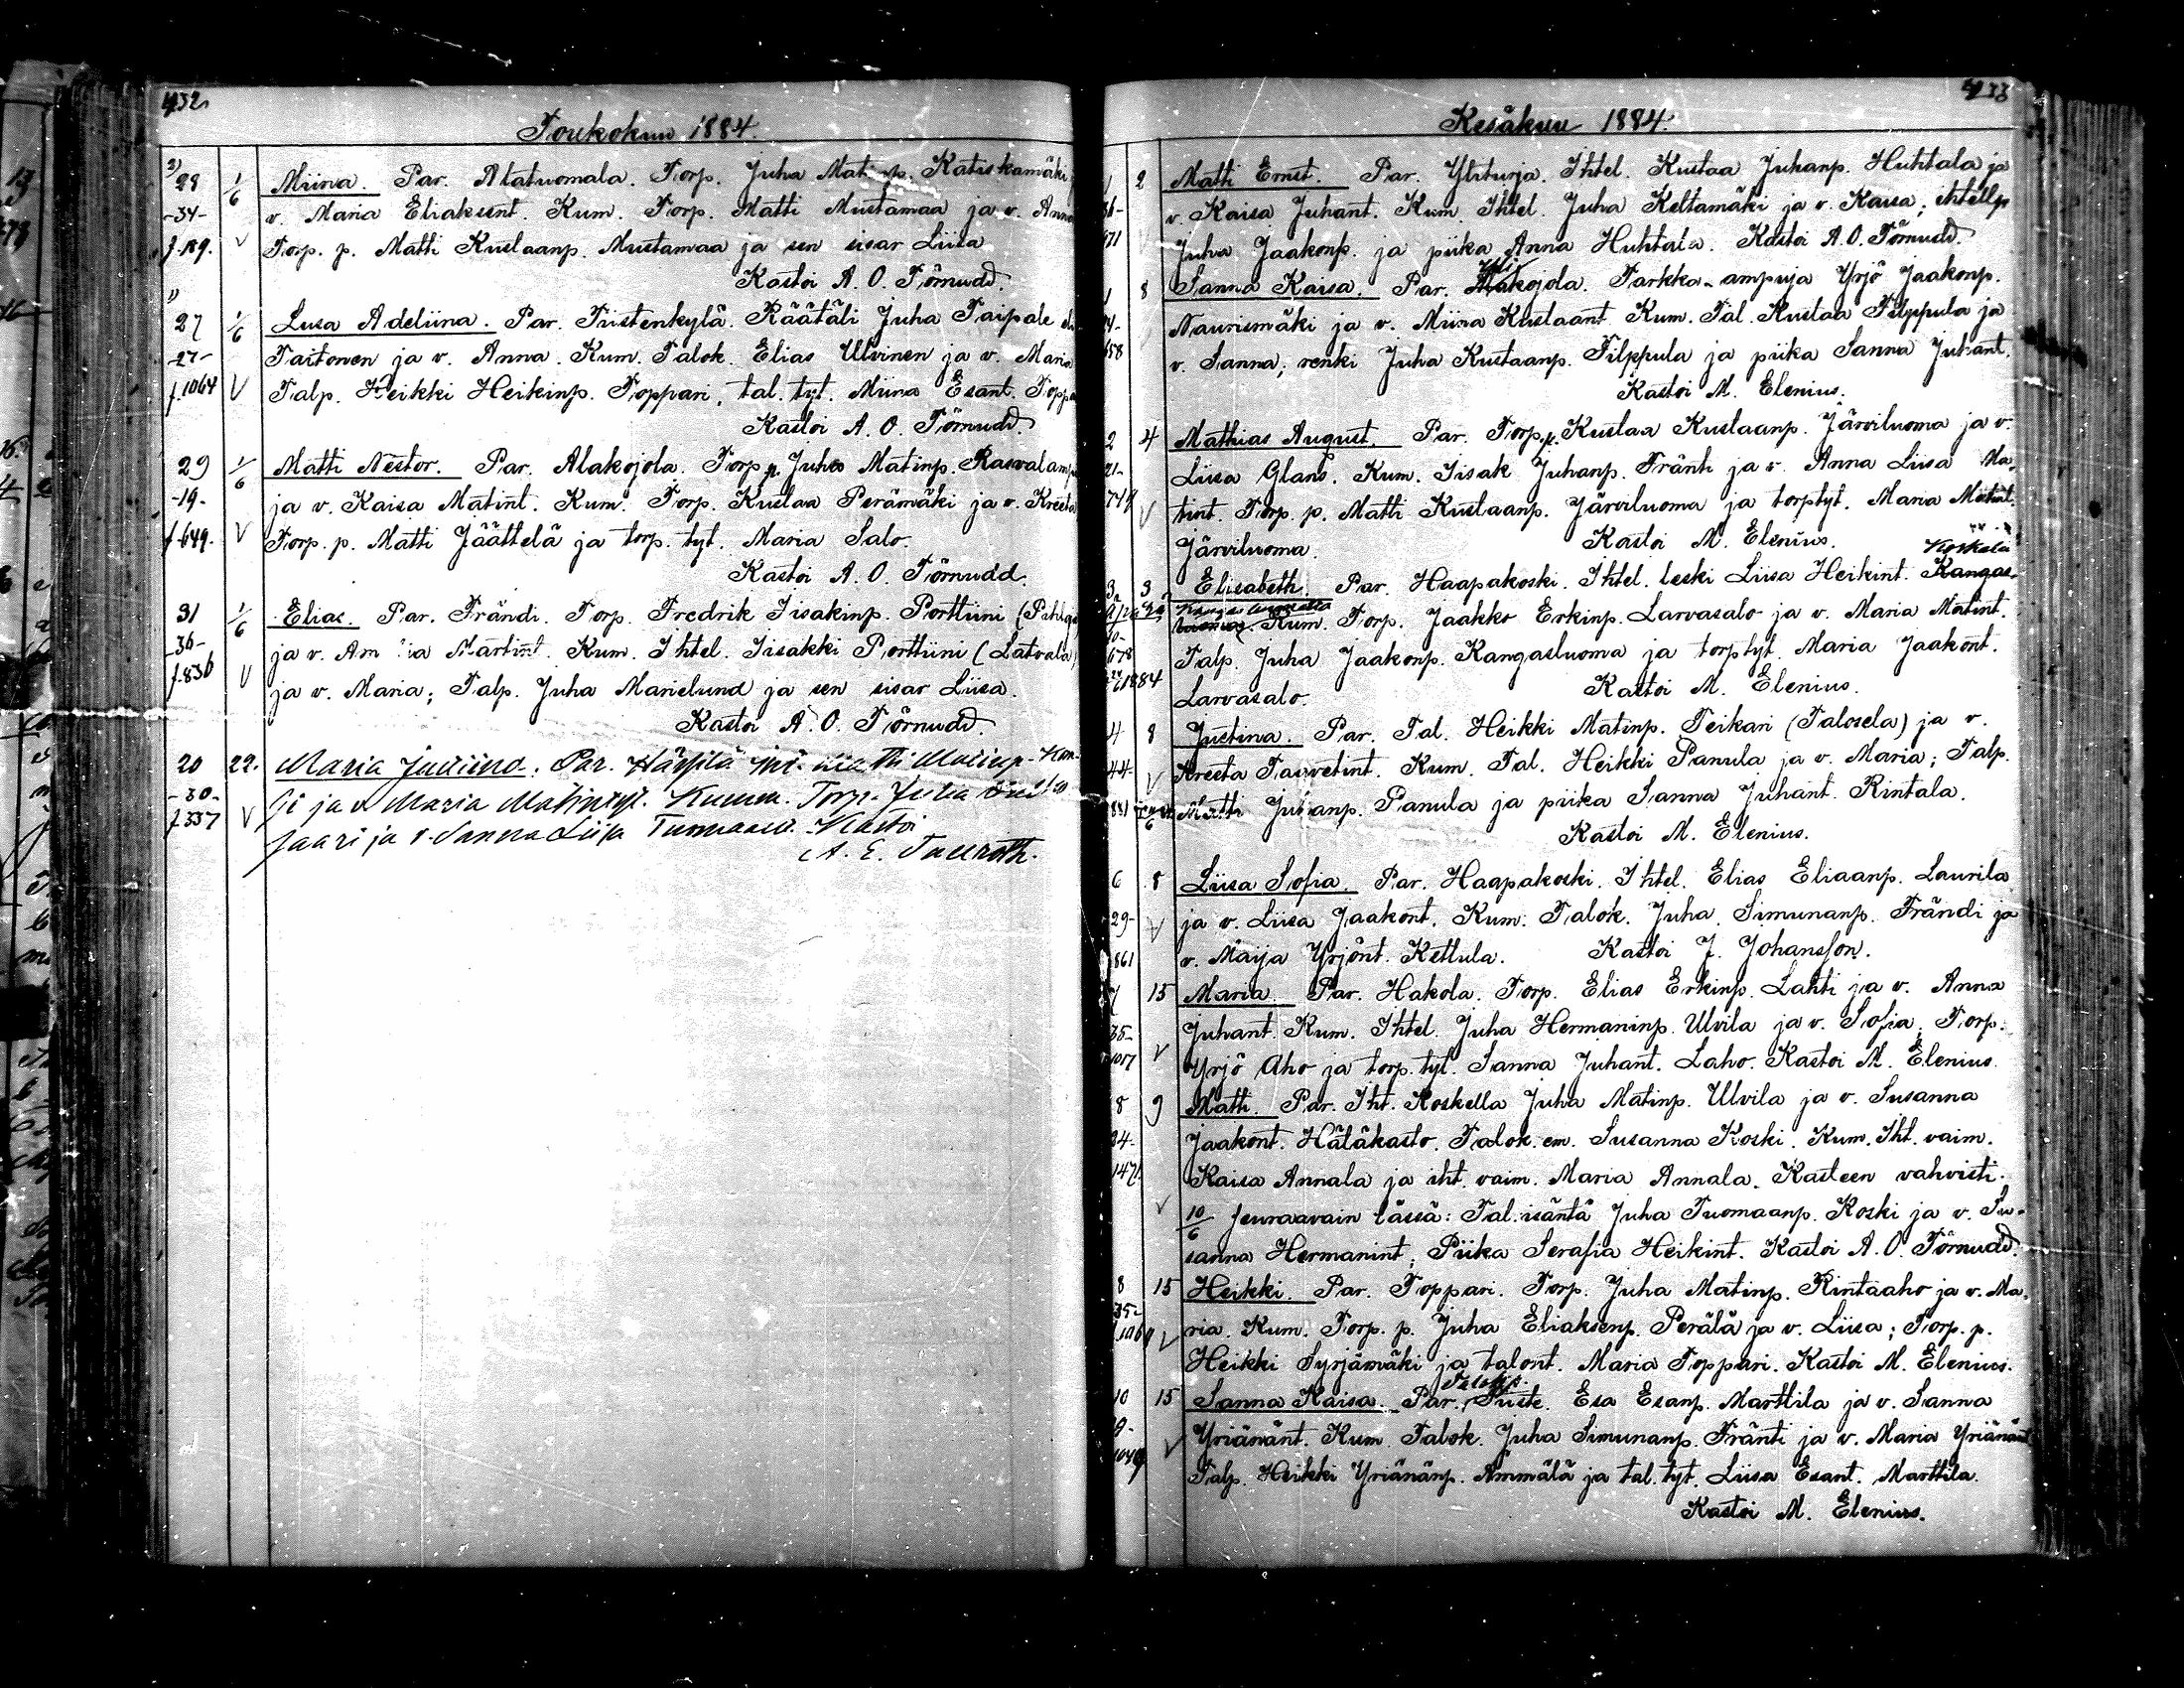 432
Toukokuu 1884.
2)
28 1/6 Miina. Par. Alatuomala. Torp. Juha Mat p. Katiskamäki
-34- v. Maria Eliaksent. Kum. Torp. Matti Mustamaa ja v. Anna
f.189. V Torp. p. Matti Kustaanp. Mustamaa ja sen sisar Liisa
Kastoi A. O. Törnudd.
1)
27 1/6 Lusa Adeliina. Par. Tiistenkylä. Räätäli Juha Taipale
-27- Taitonen ja v. Anna. Kum. Talok. Elias Ulvinen ja v. Maria
f.1064 V Talp. Heikki Heikinp. Toppari, tal. tyt. Miina Esant. Toppa
Kastoi A. O. Törnudd.
29 1/6 Matti Nestor. Par. Alakojola. Torp p. Juho Matinp. Rasvalamp
-19- ja v. Kaisa Matint. Kum. Torp. Kustaa Perämäki ja v. Kreeta
f.649. V Torp. p. Matti Jäättelä ja torp. tyt. Maria Salo.
Kastoi A. O. Törnudd.
31 1/6 Elias. Par. Frändi. Torp. Fredrik Iisakinp. Porttiini
-36- ja v. Am ia Martint. Kum. Ihtel. Iisakki Porttiini (Latvala)
f.836 V ja v. Maria; Talp. Juha Marielund ja sen sisar Liisa.
Kastoi A. O. Törnudd.
20 22. Maria Juliina. Par. Härsilä Matti Matinp.
-30- ja v. Maria Matintyt. Kumm. Torp. Juha
f.337 V saari ja v. Sanna Liisa Tuomaant. Kastoi
A. E. Taucroth.
433
Kesäkuu 1884.
1 2 Matti Ernst. Par. Yliturja. Ihtel. Kustaa Juhanp. Huhtala ja
36- v. Kaisa Juhant. Kum. Ihtel. Juha Keltamäki ja v. Kaisa; ihtellp
671 Juha Jaakonp. ja piika Anna Huhtala. Kastoi A. O. Törnudd.
Yli
1 8 Sanna Kaisa. Par. Alakojola. Tarkka-ampuja Yrjö Jaakonp.
24- Naurismäki ja v. Miina Kustaant. Kum. Tal. Kustaa Filppula ja
658 v. Sanna; renki Juha Kustaanp. Filppula ja piika Sanna Juhant.
Kastoi M. Elenius.
2 4 Mathias August. Par. Torp. p. Kustaa Kustaanp. Järviluoma ja v.
21- Liisa Glans. Kum. Iisak Juhanp. Fränti ja v. Anna Liisa Ma-
744 V tint. Torp. p. Matti Kustaanp. Järviluoma ja torptyt. Maria Matint.
Järviluoma. Kastoi M. Elenius.
Koskela
3 3 Elisabeth. Par. Haapakoski. Ihtel. leski Liisa Heikint. Kangas-
Kangasluomalla
luoma. Kum. Torp. Jaakko Erkinp. Larvasalo ja v. Maria Matint.
678 Talp. Juha Jaakonp. Kangasluoma ja torptyt. Maria Jaakont.
1884 Larvasalo. Kastoi M. Elenius.
4 8 Justina. Par. Tal. Heikki Matinp. Teikari (Talosela) ja v.
44- V Kreeta Taavetint. Kum. Tal. Heikki Panula ja v. Maria; Talp.
831 Matti Juhanp. Panula ja piika Sanna Juhant. Rintala.
Kastoi M. Elenius.
6 8 Liisa Sofia. Par. Haapakoski. Ihtel. Elias Eliaanp. Laurila
29- V ja v. Liisa Jaakont. Kum. Talok. Juha Simunanp. Frändi ja
861 v. Maija Yrjönt. Kettula. Kastoi J. Johansson.
7 15 Maria. Par. Hakola. Torp. Elias Erkinp. Lahti ja v. Anna
35- Juhant. Kum. Ihtel. Juha Hermaninp. Ulvila ja v. Sofia; Torp.
1017 V Yrjö Aho ja torp. tyt. Sanna Juhant. Laho. Kastoi M. Elenius.
8 9 Matti. Par. Iht. Koskella Juha Matinp. Ulvila ja v. Susanna
24- Jaakont. Hätäkasto. Talok. em. Susanna Koski. Kum. Iht. vaim.
1471. Kaisa Annala ja iht. vaim. Maria Annala. Kasteen vahvisti.
V 10/6 seuraavain lässä: Tal. isäntä Juha Tuomaanp. Koski ja v. Su-
sanna Hermanint; Piika Serafia Heikint. Kastoi A. O. Törnudd.
8 15 Heikki. Par. Toppari. Torp. Juha Matinp. Rintaaho ja v. Ma-
35- V ria. Kum. Torp. p. Juha Eliaksenp. Perälä ja v. Liisa; Torp. p.
Heikki Syrjämäki ja talont. Maria Toppari. Kastoi M. Elenius.
Talollp.
10 15 Sanna Kaisa. Par. Tiiste. Esa Esanp. Marttila ja v. Sanna
Yriänänt. Kum. Talok. Juha Simunanp. Fränti ja v. Maria Yriänänt
1049 V Talp. Heikki Yriänänp. Ammälä ja tal. tyt. Liisa Esant. Marttila.
Kastoi M. Elenius.